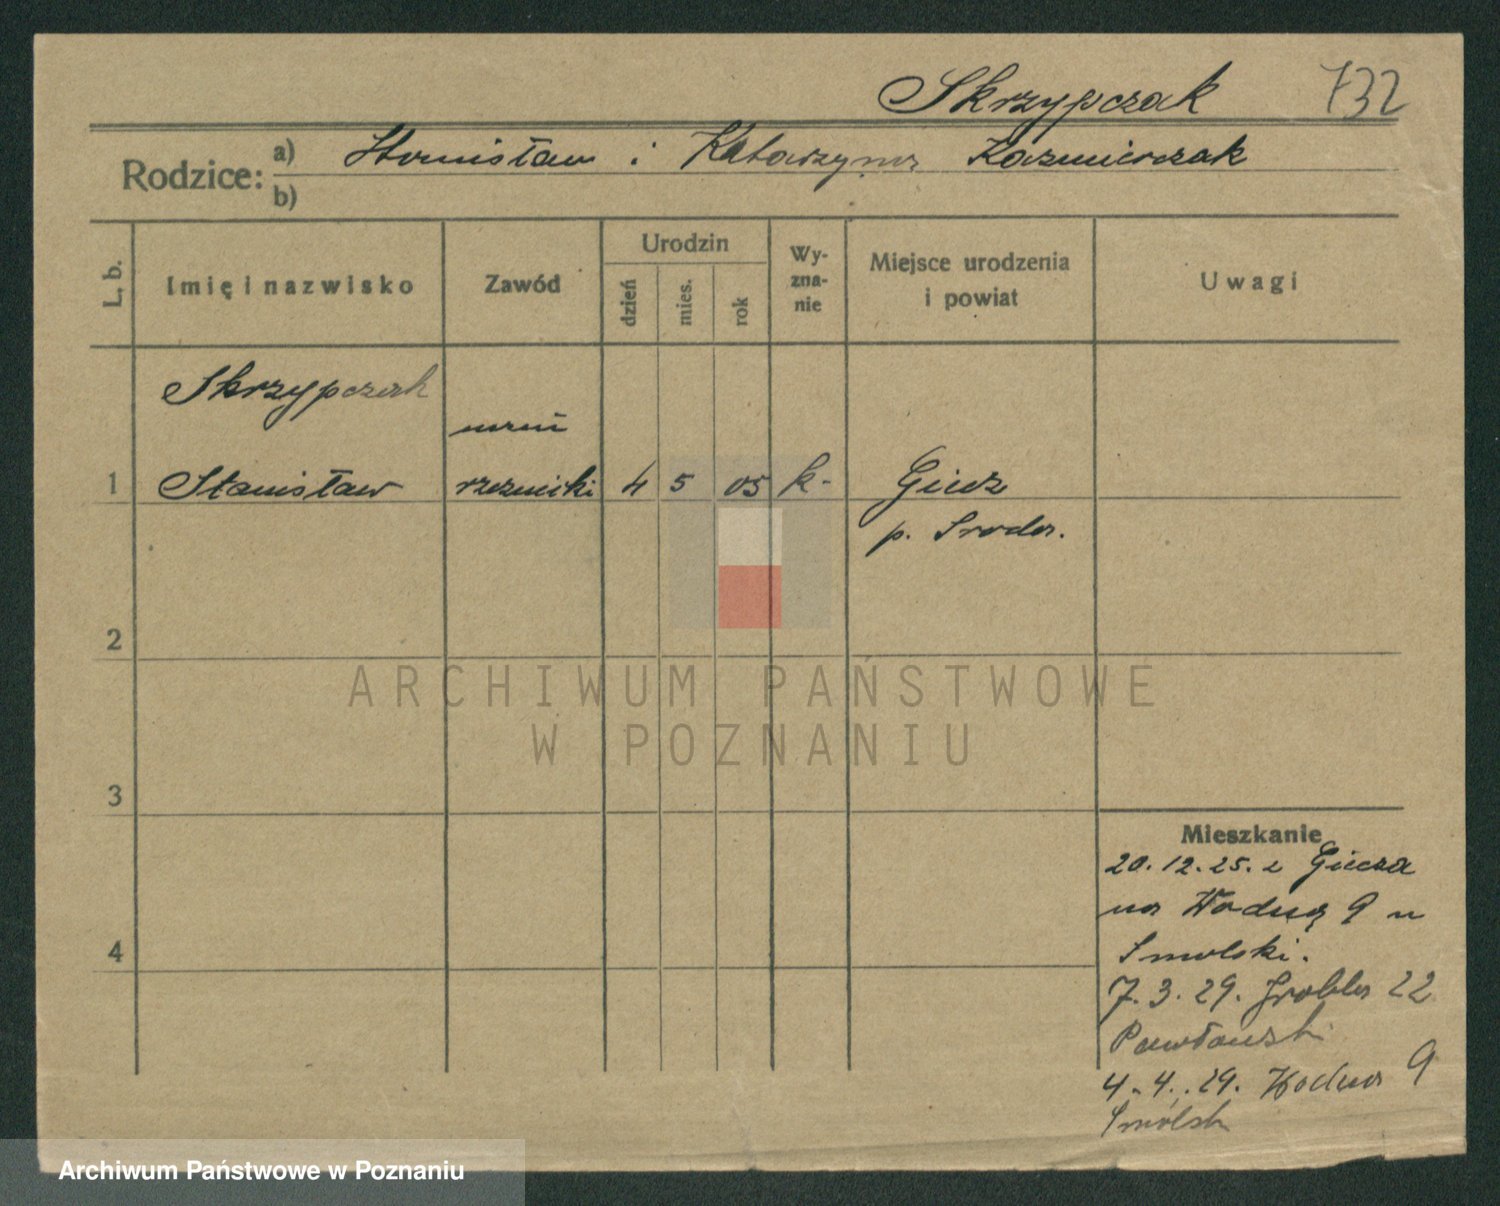 Skrzypczak 732
Rodzice: a) Stanisław i Katarzyna Kaźmierczak
b)
L. b.
Imię i nazwisko
Zawód
Urodzin
dzień
mies.
rok
Wy-
zna-
nie
Miejsce urodzenia
i powiat
Uwagi
Skrzypczak
uczeń
1 Stanisław rzeźnicki 4 5 05 k- Giecz
p. Środa.
2
3
4
ARCHIWUM PAŃSTWOWE
W POZNANIU
Mieszkanie
20.12.25. z Giecza
na Wodną 9 u
Smolski.
7.3.29. Grobla 22
Pawłowski
4.4.29. Wodna 9
Smolski
Archiwum Państwowe w Poznaniu